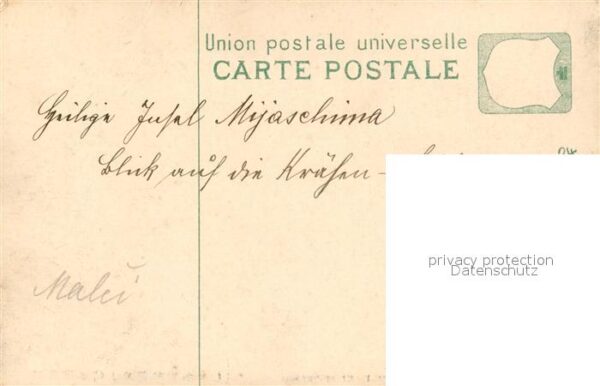 Union postale universelle
CARTE POSTALE
Heilige Insel Mijaschima
Blick auf die Krähen-
privacy protection
Datenschutz